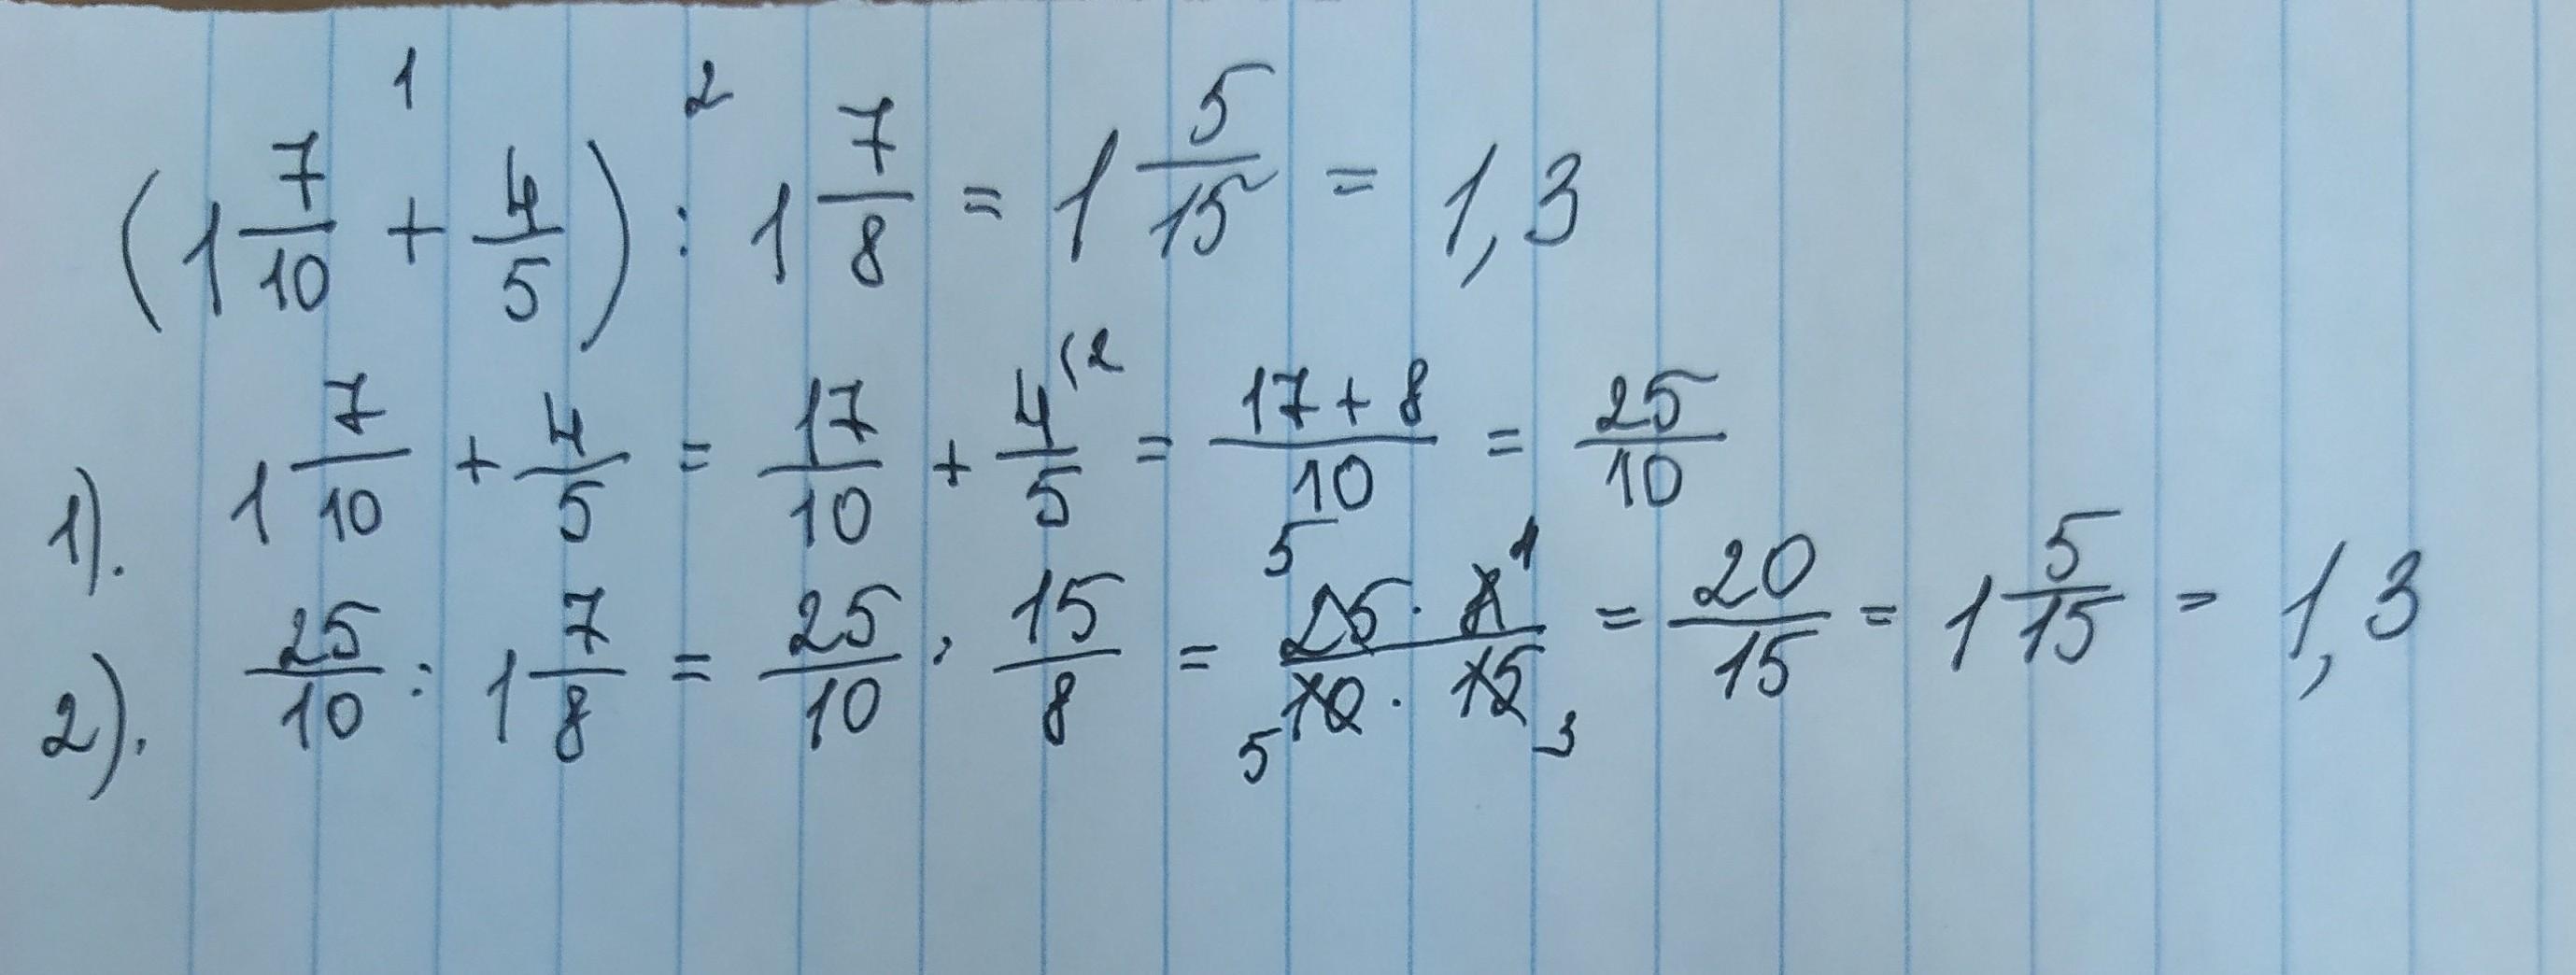 1 2
(1 7/10 + 4/5) : 1 7/8 = 1 5/15 = 1,3
1). 1 7/10 + 4/5 (2 = 17/10 + 4/5 = 17+8/10 = 25/10
2). 25/10 : 1 7/8 = 25/10 · 15/8 = 5 25 · 8 1 / 5 10 · 15 3 = 20/15 = 1 5/15 = 1,3